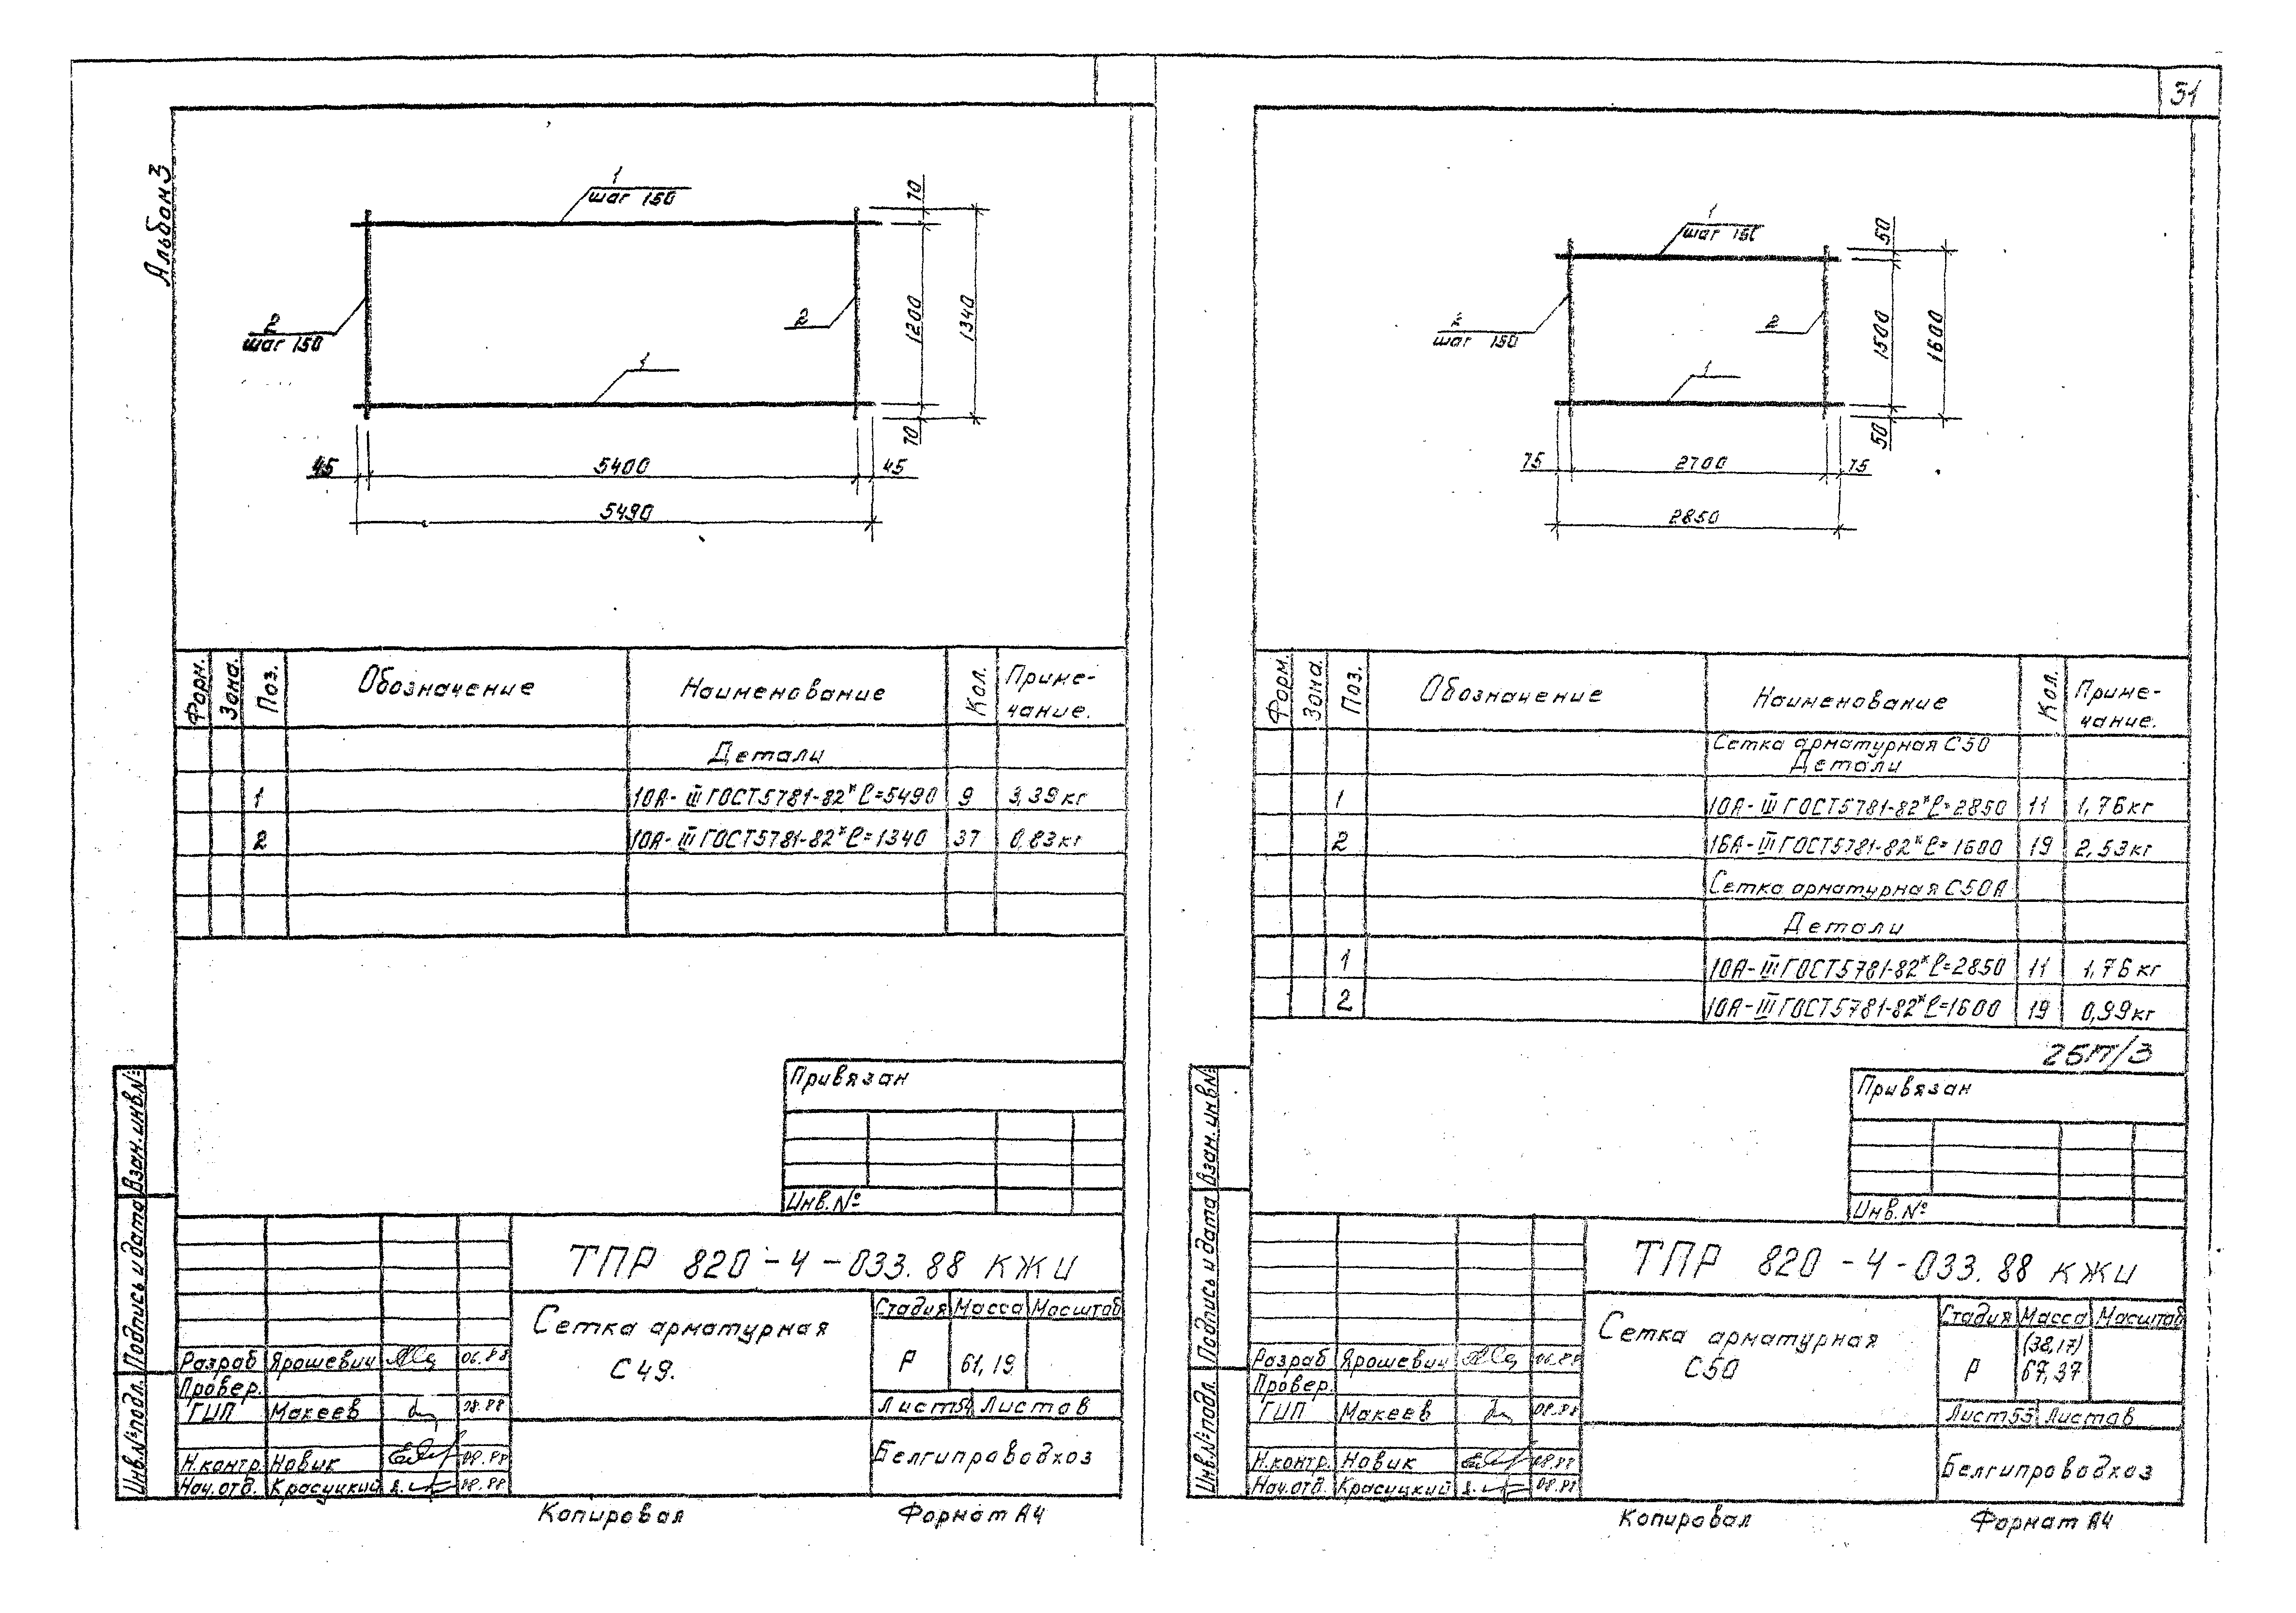 Альбом 3
1
шаг 150
2
шаг 150
2
1
70
1200
1340
70
45
5400
45
5490
Форм.
Зона.
Поз.
Обозначение
Наименование
Кол.
Приме-
чание.
Детали
1 10А-III ГОСТ5781-82* ℓ=5490 9 3,39кг
2 10А-III ГОСТ5781-82* ℓ=1340 37 0,83кг
Привязан
Инв.№
Взам.инв.№
Подпись и дата
Инв.№подл.
ТПР 820-4-033.88 КЖИ
Сетка арматурная
С49.
Стадия Масса Масштаб
Р 61,19
Лист54 Листов
Белгипроводхоз
Разраб Ярошевич 06.88
Провер.
ГИП Макеев 08.88
Н.контр. Новик 08.88
Нач.отд. Красуцкий 08.88
Копировал
Формат А4
31
1
шаг 150
2
шаг 150
2
1
50
1500
1600
50
75
2700
75
2850
Форм.
Зона.
Поз.
Обозначение
Наименование
Кол.
Приме-
чание.
Сетка арматурная С50
Детали
1 10А-III ГОСТ5781-82* ℓ=2850 11 1,76кг
2 16А-III ГОСТ5781-82* ℓ=1600 19 2,53кг
Сетка арматурная С50А
Детали
1 10А-III ГОСТ5781-82* ℓ=2850 11 1,76кг
2 10А-III ГОСТ5781-82* ℓ=1600 19 0,99кг
Привязан
Инв.№
Взам.инв.№
Подпись и дата
Инв.№подл.
ТПР 820-4-033.88 КЖИ
Сетка арматурная
С50
Стадия Масса Масштаб
(38,17)
Р 67,37
Лист55 Листов
Белгипроводхоз
Разраб Ярошевич 06.88
Провер.
ГИП Макеев 08.88
Н.контр. Новик 08.88
Нач.отд. Красуцкий 08.88
Копировал
Формат А4